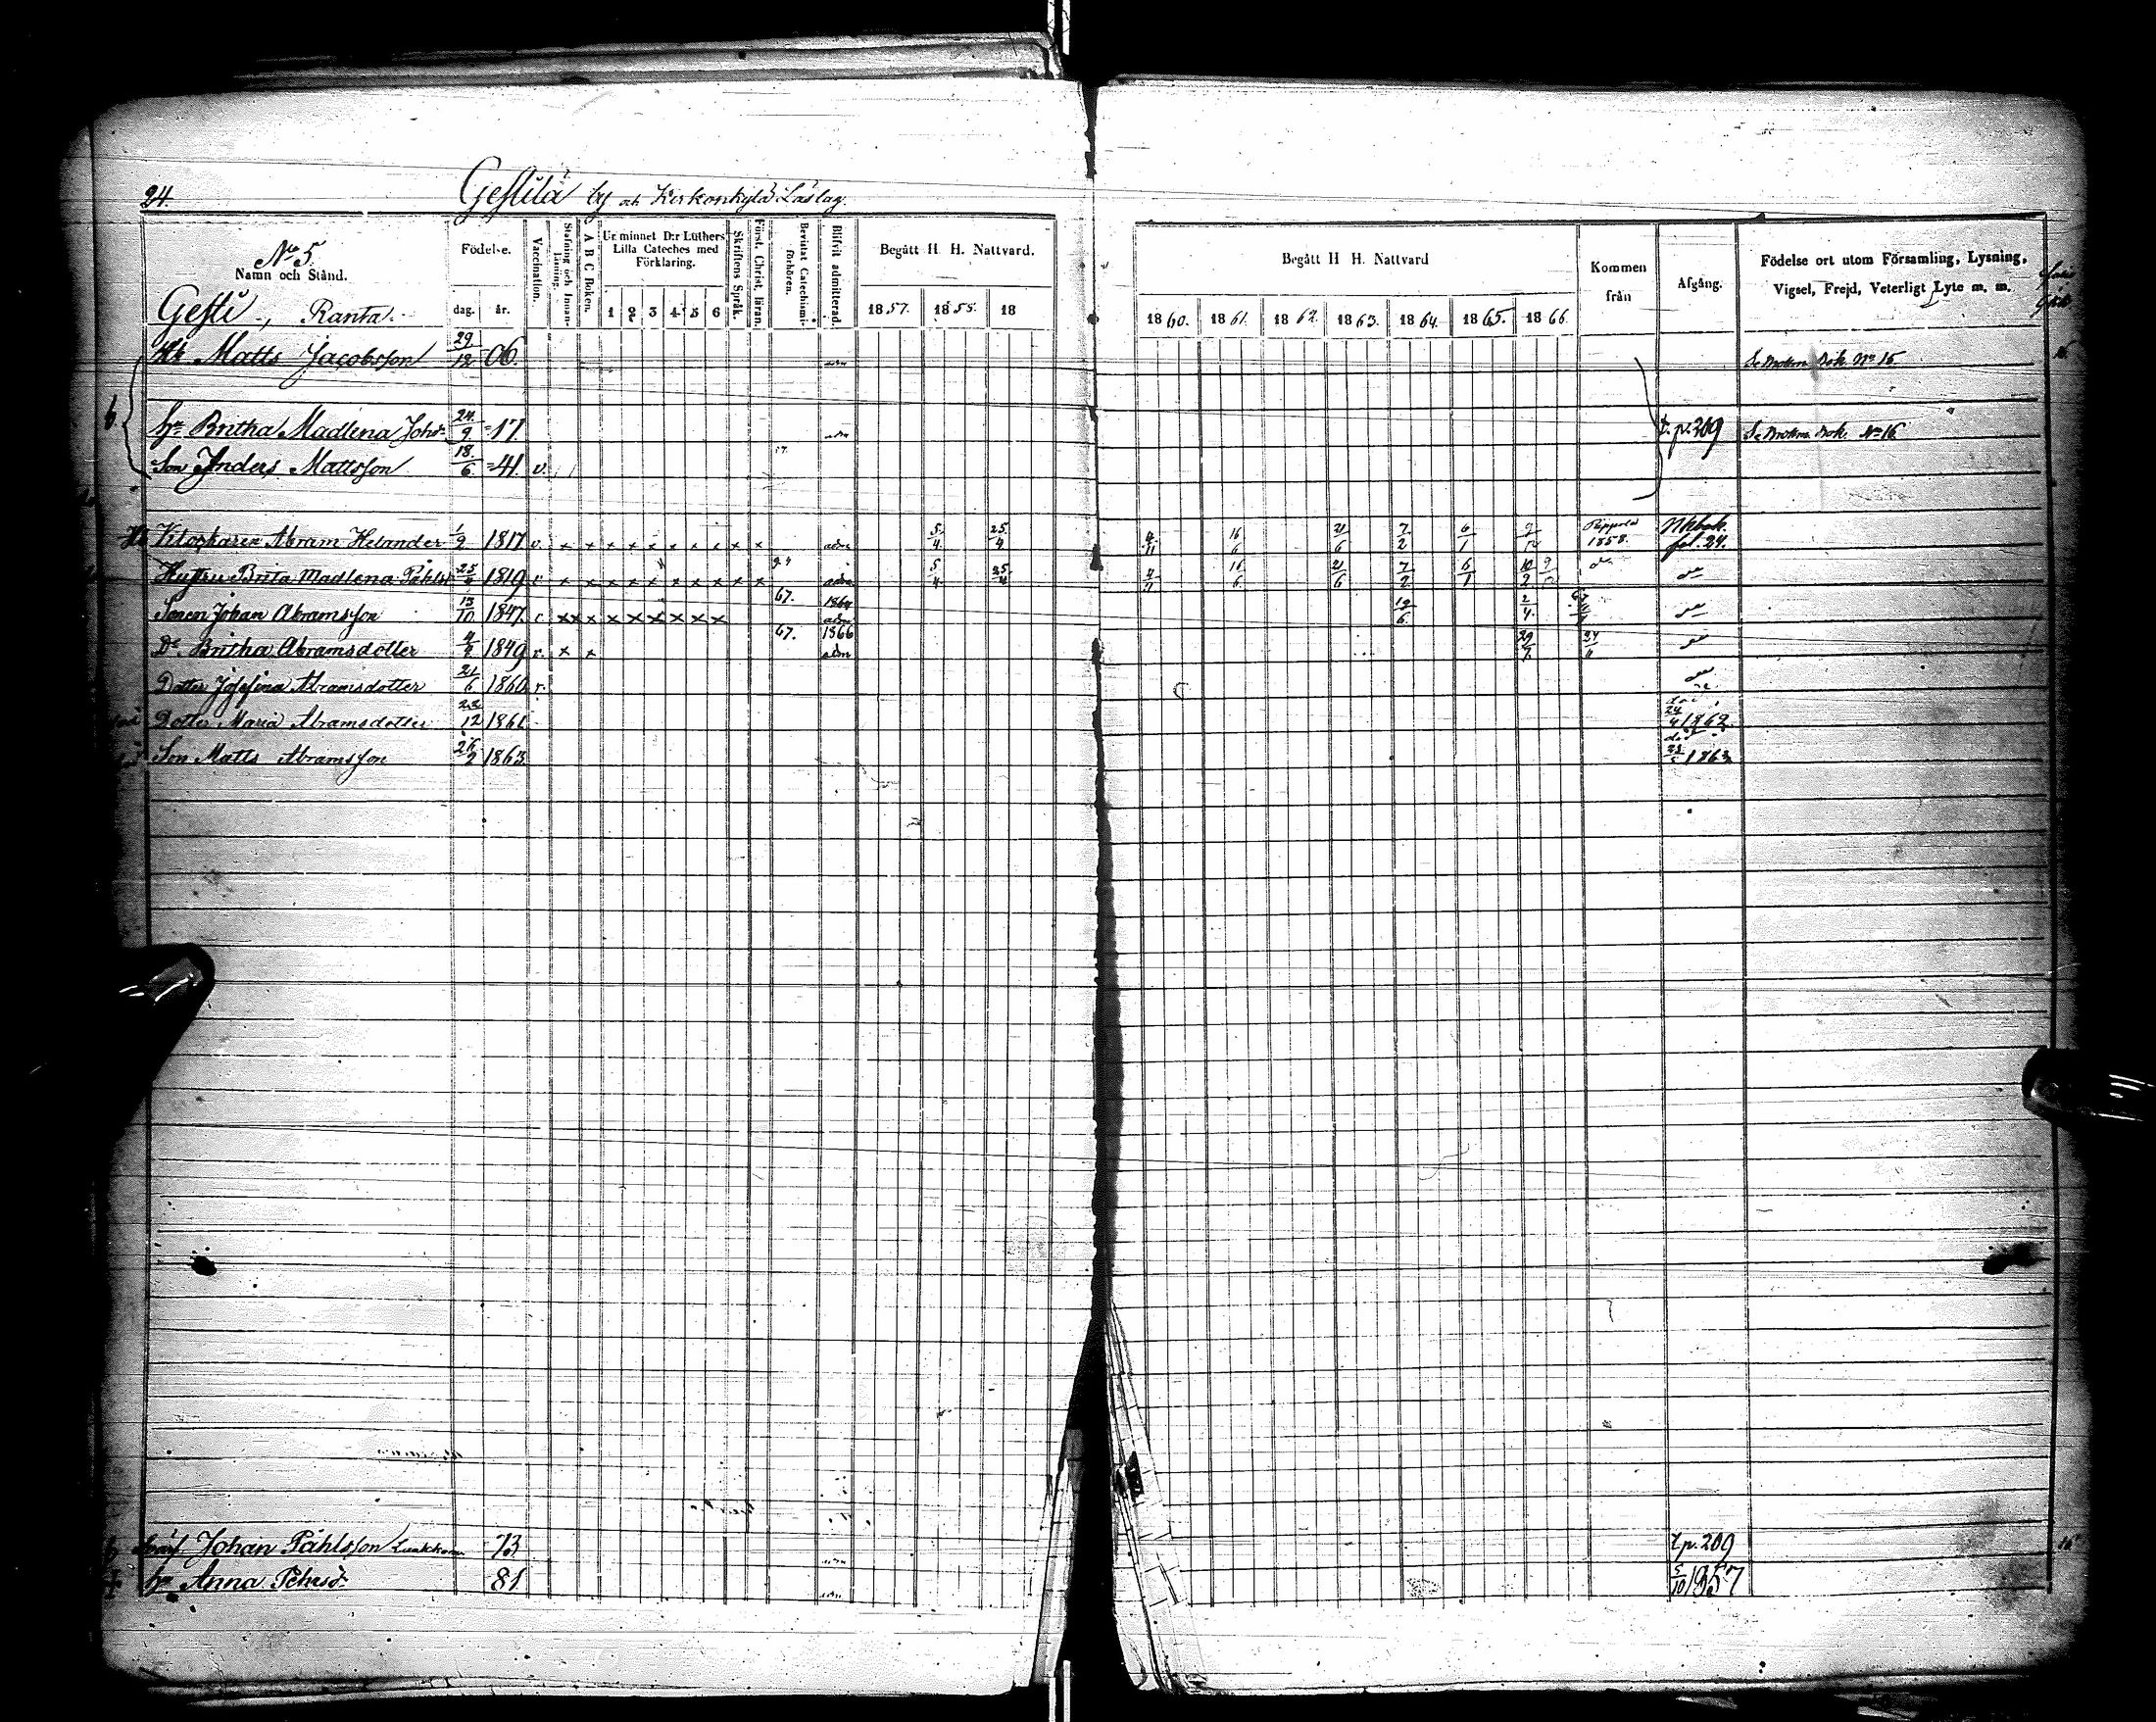 24.
Gestilä by och Kirkonkylä Läslag.
No 5.
Namn och Stånd.
Födelse.
dag. år.
Vaccination.
Stafning och Innan-läsning.
A B C Boken.
Ur minnet D:r Luthers Lilla Cateches med Förklaring.
1 2 3 4 5 6
Skriftens Språk.
Först. Christ. läran.
Bevistat Catechismi-förhören.
Blifvit admitterad.
Begått H. H. Nattvard.
1857. 1858. 18
Begått H. H. Nattvard
1860. 1861. 1862. 1863. 1864. 1865. 1866.
Kommen från
Afgång.
Födelse ort utom Församling, Lysning, Vigsel, Frejd, Veterligt Lyte m. m.
Gesti, Ranta.
Matts Jacobsson 29/12 06. Se Brottm. Bok No 16
Britha Madlena Johsd. 24/9 17. adm t. p. 209 Se Brottm. Bok. No 16
Son Anders Mattsson 18/6 41. v.
Klockaren Abram Helander 1/2 1817 v. x x x x x x x x x x adm 5/4 25/4 4/11 16/6 21/6 7/2 6/1 1858. fol. 24.
Hustru Brita Madlena Påhlsd 1819 x x x x x x x x x x adm 5/4 25/4 16/6 21/6 7/2 6/1
Sonen Johan Abramsson 13/10 1847. x x x x x x x x x 67. 1864 adm 19/6 2/4
Dr. Britha Abramsdotter 1849 v. x x 67. 1866 adm 29/7
Dotter Josefina Abramsdotter 21/6 1860 v.
Dotter Maria Abramsdotter 12 1861 1862
Son Matts Abramsson 26/2 1863 1863
Johan Påhlsson 73 t. p. 209
Anna Pehrsd. 81 5/10 1857